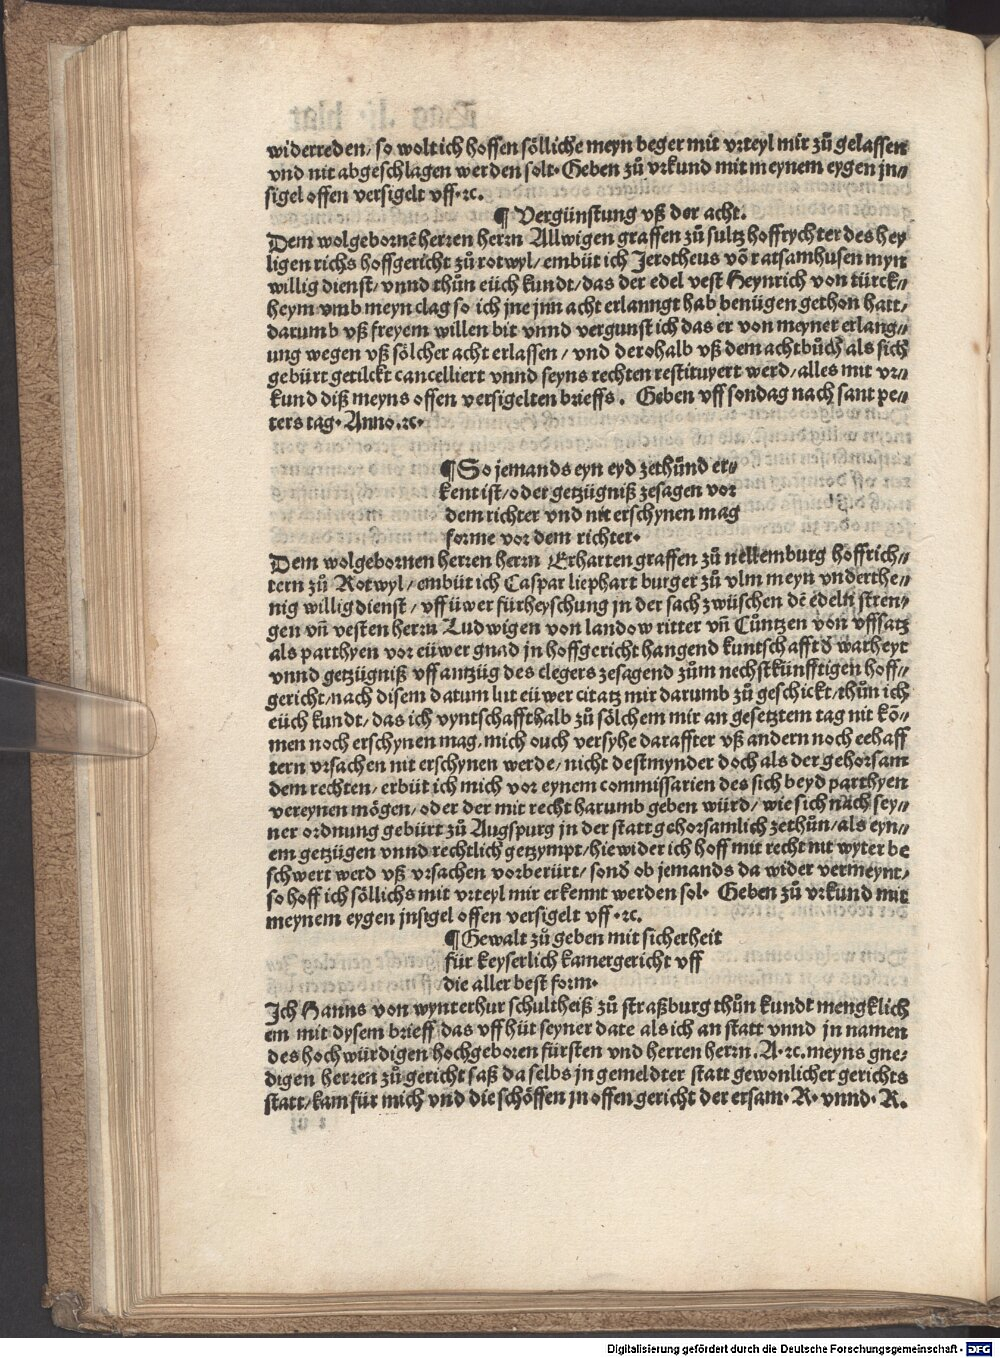 widerreden/ so wolt ich hoffen sölliche meyn beger mit vrteyl mir zů gelassen
vnd nit abgeschlagen werden solt· Geben zů vrkund mit meynem eygen jn⸗
sigel offen versigelt vff·ꝛc.
¶ Vergünstung vß der acht.
Dem wolgebornē herren herrn Allwigen graffen zů sultz hoffrychter des hey
ligen richs hoffgericht zů rotwyl/ embüt ich Jerotheus võ ratsamhusen myn
willig dienst/ vnnd thůn eüch kundt/ das der edel vest Heynrich von türck⸗
heym vmb meyn clag so ich jne jnn acht erlanngt hab benügen gethon hatt/
darumb vß freyem willen bit vnnd vergunst ich das er von meyner erlang⸗
ung wegen vß sölcher acht erlassen/ vnd derohalb vß dem achtbůch als sich
gebürt getilckt cancelliert vnnd seyns rechten restituyert werd/ alles mit vr⸗
kund diß meyns offen versigelten brieffs. Geben vff sondag nach sant pe⸗
ters tag· Anno.ꝛc·
¶ So jemands eyn eyd zethůnd er⸗
kent ist/ oder getzügniß zesagen vor
dem richter vnd nit erschynen mag
forme vor dem richter·
Dem wolgebornen herren herrn Erharten graffen zů nellemburg hoffrich⸗
tern zů Rotwyl/ embüt ich Caspar liephart burger zů vlm meyn vnderthe⸗
nig willig dienst/ vff üwer fürheyschung jn der sach zwüschen dē edeln stren⸗
gen vñ vesten herrn Ludwigen von landow ritter vñ Cůntzen von vffsatz
als parthyen vor eüwer gnad jn hoffgericht hangend kuntschafft đ warheyt
vnnd getzügniß vff antzüg des clegers zesagend zům nechstkünfftigen hoff⸗
gericht/ nach disem datum lut eüwer citatz mir darumb zů geschickt/ thůn ich
eüch kundt/ das ich vyntschaffthalb zů sölchem mir an gesetztem tag nit kõ⸗
men noch erschynen mag, mich ouch versyhe daraffter vß andern noch eehaff
tern vrsachen nit erschynen werde/ nicht destmynder doch als der gehorsam
dem rechten/ erbüt ich mich vor eynem commissarien des sich beyd parthyen
vereynen mögen/ oder der mit recht harumb geben würd/ wie sich nach sey⸗
ner ordnung gebürt zů Augspurg jn der statt gehorsamlich zethůn/ als eyn⸗
em getzügen vnnd rechtlich getzympt/ hiewider ich hoff mit recht nit wyter be
schwert werd vß vrsachen vorberürt/ sonđ ob jemands da wider vermeynt/
so hoff ich söllichs mit vrteyl mir erkennt werden sol· Geben zů vrkund mit
meynem eygen jnsigel offen versigelt vff·ꝛc.
¶ Gewalt zů geben mit sicherheit
für keyserlich kamergericht vff
die aller best form·
Ich Hanns von wynterthur schultheiß zů straßburg thůn kundt mengklich
em mit dysem brieff das vff hüt seyner date als ich an statt vnnd jn namen
des hochwürdigen hochgeboren fürsten vnd herren herrn. A·ꝛc. meyns gne⸗
digen herren zů gericht saß daselbs jn gemeldter statt gewonlicher gerichts
statt/ kam für mich vnd die schöffen jn offen gericht der ersam· R· vnnd· R.
Digitalisierung gefördert durch die Deutsche Forschungsgemeinschaft - DFG